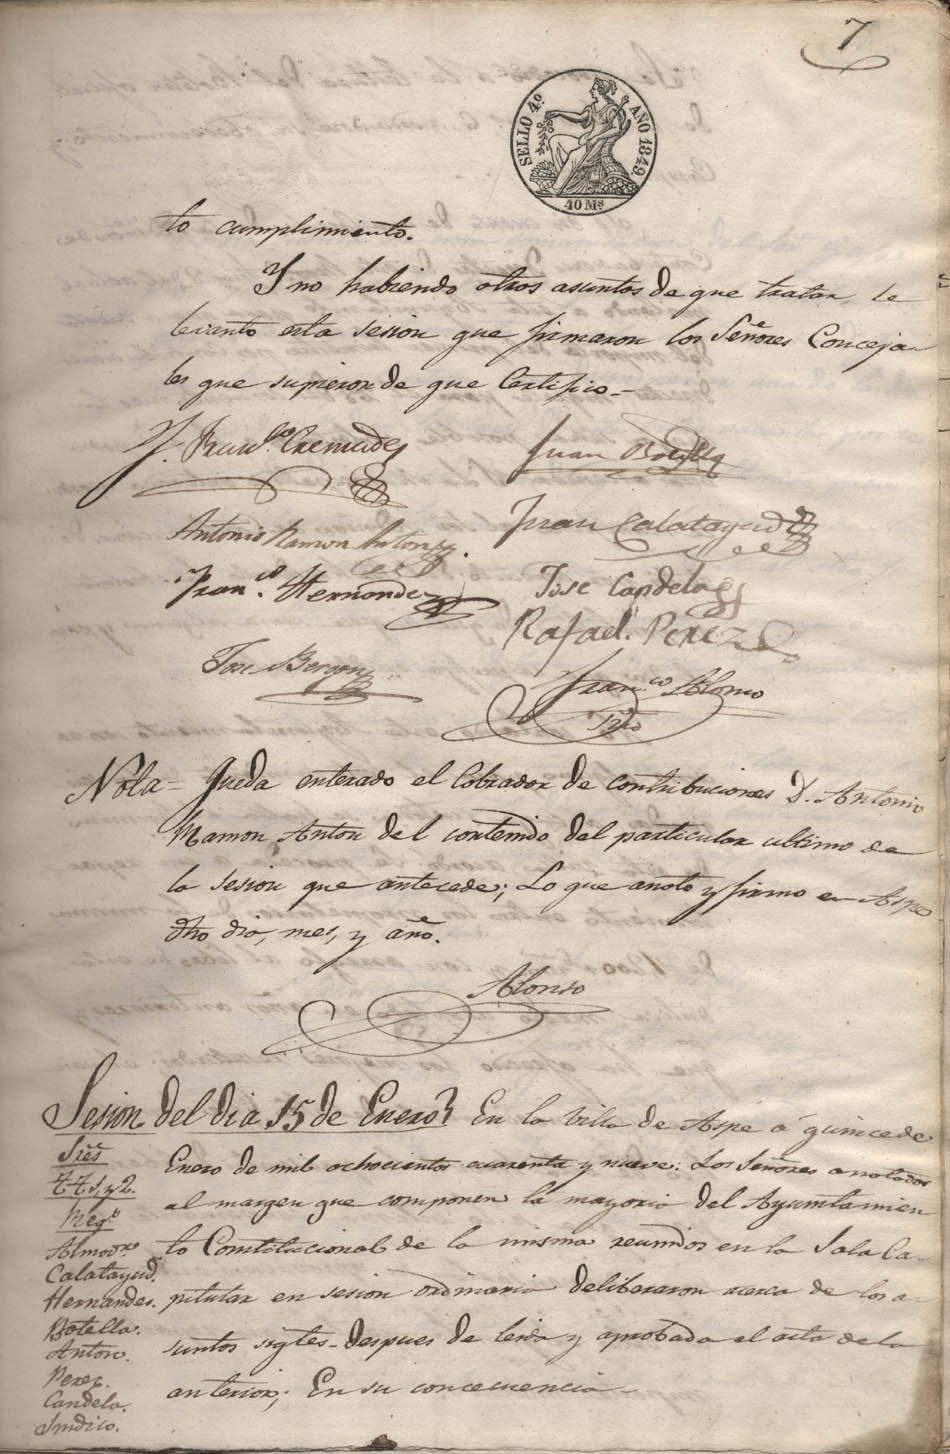 7
SELLO 4º AÑO 1849.
40 Ms
to cumplimiento.
Y no habiendo otros asuntos de que tratar, se
levanto esta sesion que firmaron los Señores Conceja-
les que supieron de que Certifico-
Cremades
Juan Botella
Antonio Ramon Anton
Juan Calatayud
Franco. Hernandez
Jose Candela
Rafael. Perez
Jose Bergen
Franco Alonso
Srio
Nota= Queda enterado el Cobrador de contribuciones D. Antonio
Ramon Anton del contenido del particular ultimo de
la sesion que antecede; Lo que anoto y firmo en Aspe
dho dia, mes, y año.
Alonso
Sesion del dia 15 de Enero En la Villa de Aspe á quince de
Enero de mil ochocientos cuarenta y nueve: Los Señores anotados
al margen que componen la mayoria del Ayuntamien
to Constitucional de la misma reunidos en la Sala Ca-
pitular en sesion ordinaria deliberaron acerca de los a-
suntos sigtes- despues de leida y aprobada el acta de la
anterior; En su concecuencia-
Sres
TT 1. y 2.
Almodr.
Calatayud.
Hernandes.
Botella.
Anton.
Perez.
Candela.
Sindico.